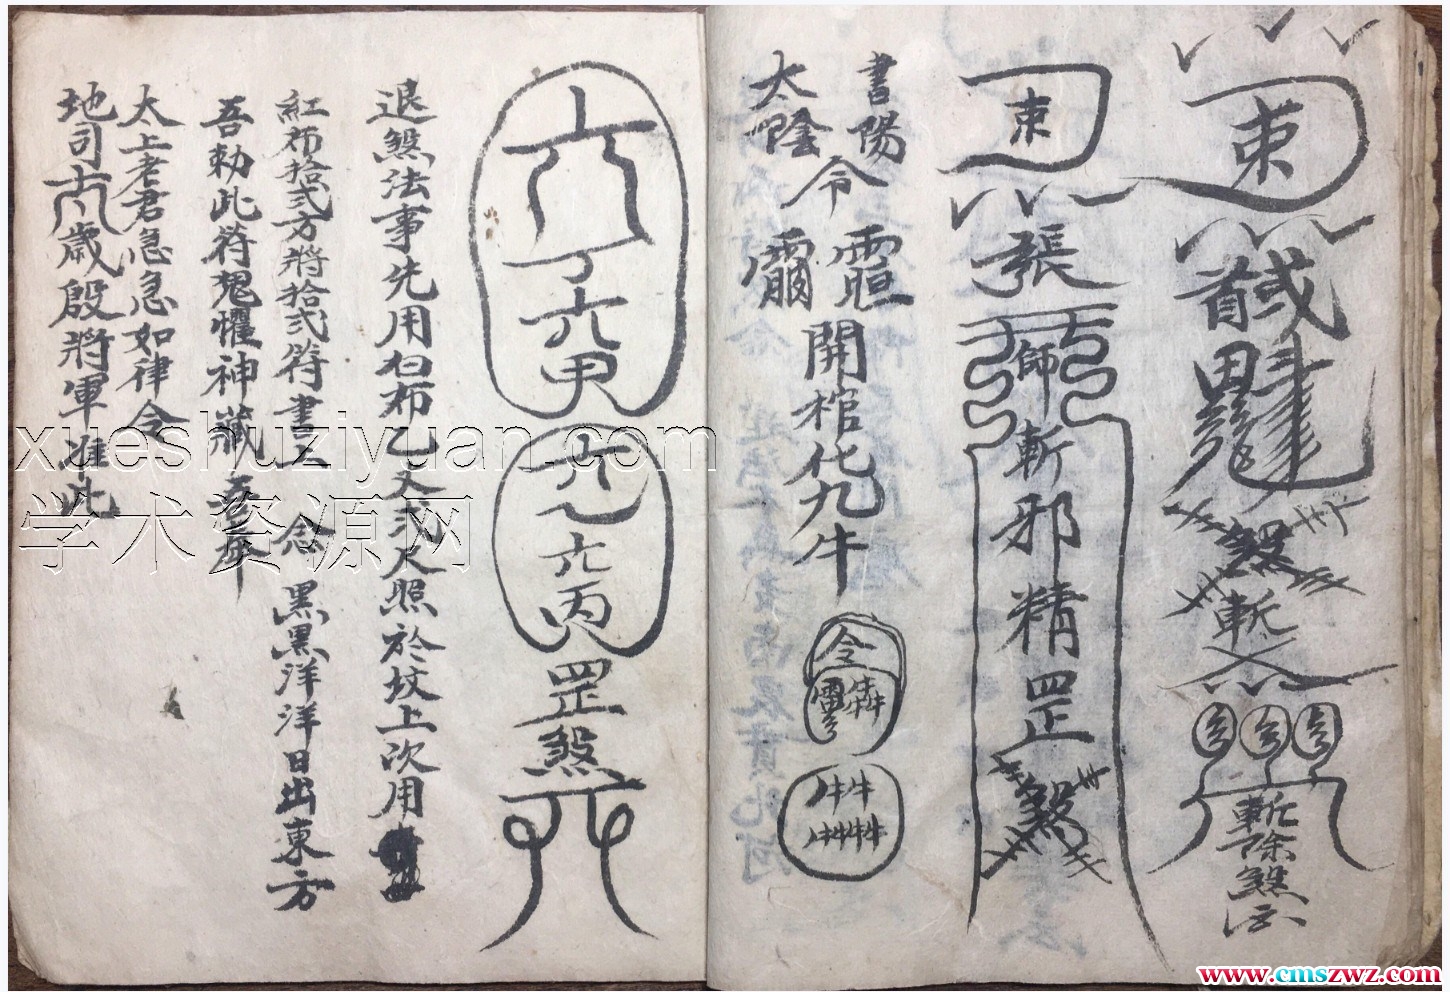 束
斬
斬除煞法
束
張
師
斬
邪
精
罡
煞
書太
陽陰
令
開棺化九牛
令
六
丁
六甲
六丙
罡
煞
退煞法事先用白布乙丈 尺照於坟上次用
紅布拾弍方將拾弍符書上 念 黑黑洋洋日出東方
吾勅此符鬼懼神藏
太上老君急急如律令
地司 歲殷將軍准此
xueshuziyuan.com
学术资源网
www.cmszwz.com